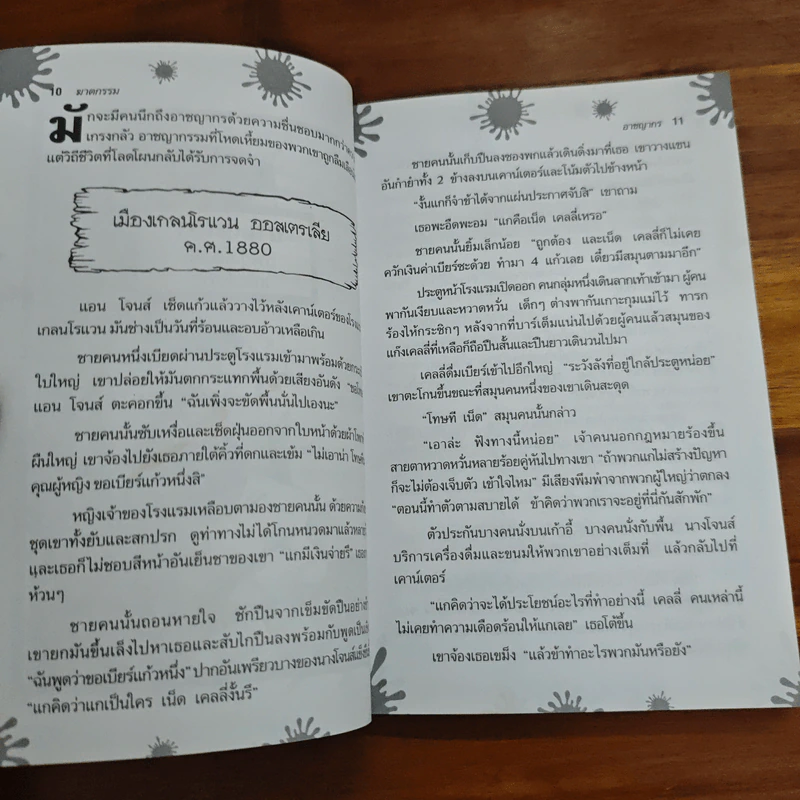 10 ฆาตกรรม
มักจะมีคนนึกถึงอาชญากรด้วยความชื่นชอบมากกว่า
เกรงกลัว อาชญากรรมที่โหดเหี้ยมของพวกเขาถูกลืม
แต่วิถีชีวิตที่โลดโผนกลับได้รับการจดจำ
เมืองเกลนโรแวน ออสเตรเลีย
ค.ศ.1880
แอน โจนส์ เช็ดแก้วแล้ววางไว้หลังเคาน์เตอร์ของโรงแรม
เกลนโรแวน มันช่างเป็นวันที่ร้อนและอบอ้าวเหลือเกิน
ชายคนหนึ่งเบียดผ่านประตูโรงแรมเข้ามาพร้อมด้วย
ใบใหญ่ เขาปล่อยให้มันตกกระแทกพื้นด้วยเสียงอันดัง
แอน โจนส์ ตะคอกขึ้น “ฉันเพิ่งจะขัดพื้นนั่นไปเองนะ”
ชายคนนั้นซับเหงื่อและเช็ดฝุ่นออกจากใบหน้าด้วย
ผืนใหญ่ เขาจ้องไปยังเธอภายใต้คิ้วที่ดกและเข้ม “ไม่เอาน่า
คุณผู้หญิง ขอเบียร์แก้วหนึ่งสิ”
หญิงเจ้าของโรงแรมเหลือบตามองชายคนนั้น ด้วย
ชุดเขาทั้งยับและสกปรก ดูท่าทางไม่ได้โกนหนวดมาแล้ว
และเธอก็ไม่ชอบสีหน้าอันเย็นชาของเขา “แกมีเงินจ่ายรึ”
ห้วนๆ
ชายคนนั้นถอนหายใจ ชักปืนจากเข็มขัดปืนอย่าง
เขายกมันขึ้นเล็งไปหาเธอและสับไกปืนลงพร้อมกับพูด
“ฉันพูดว่าขอเบียร์แก้วหนึ่ง” ปากอันเพรียวบางของนางโจนส์
“แกคิดว่าแกเป็นใคร เน็ด เคลลี่งั้นรึ”
อาชญากร 11
ชายคนนั้นเก็บปืนลงซองพกแล้วเดินดิ่งมาที่เธอ เขาวางแขน
อันกำยำทั้ง 2 ข้างลงบนเคาน์เตอร์และโน้มตัวไปข้างหน้า
“งั้นแกก็จำข้าได้จากแผ่นประกาศจับสิ” เขาถาม
เธอพะอืดพะอม “แกคือเน็ด เคลลี่เหรอ”
ชายคนนั้นยิ้มเล็กน้อย “ถูกต้อง และเน็ด เคลลี่ก็ไม่เคย
ควักเงินค่าเบียร์ซะด้วย ทำมา 4 แก้วเลย เดี๋ยวมีสมุนตามมาอีก”
ประตูหน้าโรงแรมเปิดออก คนกลุ่มหนึ่งเดินลากเท้าเข้ามา ผู้คน
พากันเงียบและหวาดหวั่น เด็กๆ ต่างพากันเกาะกุมแม่ไว้ ทารก
ร้องไห้กระซิกๆ หลังจากที่บาร์เต็มแน่นไปด้วยผู้คนแล้วสมุนของ
แก๊งเคลลี่ที่เหลือก็ถือปืนสั้นและปืนยาวเดินวนไปมา
เคลลี่ดื่มเบียร์เข้าไปอึกใหญ่ “ระวังลังที่อยู่ใกล้ประตูหน่อย”
เขาตะโกนขึ้นขณะที่สมุนคนหนึ่งของเขาเดินสะดุด
“โทษที เน็ด” สมุนคนนั้นกล่าว
“เอาล่ะ ฟังทางนี้หน่อย” เจ้าคนนอกกฎหมายร้องขึ้น
สายตาหวาดหวั่นหลายร้อยคู่หันไปทางเขา “ถ้าพวกแกไม่สร้างปัญหา
ก็จะไม่ต้องเจ็บตัว เข้าใจไหม” มีเสียงพึมพำจากพวกผู้ใหญ่ว่าตกลง
“ตอนนี้ทำตัวตามสบายได้ ข้าคิดว่าพวกเราจะอยู่ที่นี่กันสักพัก”
ตัวประกันบางคนนั่งบนเก้าอี้ บางคนนั่งกับพื้น นางโจนส์
บริการเครื่องดื่มและขนมให้พวกเขาอย่างเต็มที่ แล้วกลับไปที่
เคาน์เตอร์
“แกคิดว่าจะได้ประโยชน์อะไรที่ทำอย่างนี้ เคลลี่ คนเหล่านี้
ไม่เคยทำความเดือดร้อนให้แกเลย” เธอโต้ขึ้น
เขาจ้องเธอเขม็ง “แล้วข้าทำอะไรพวกมันหรือยัง”